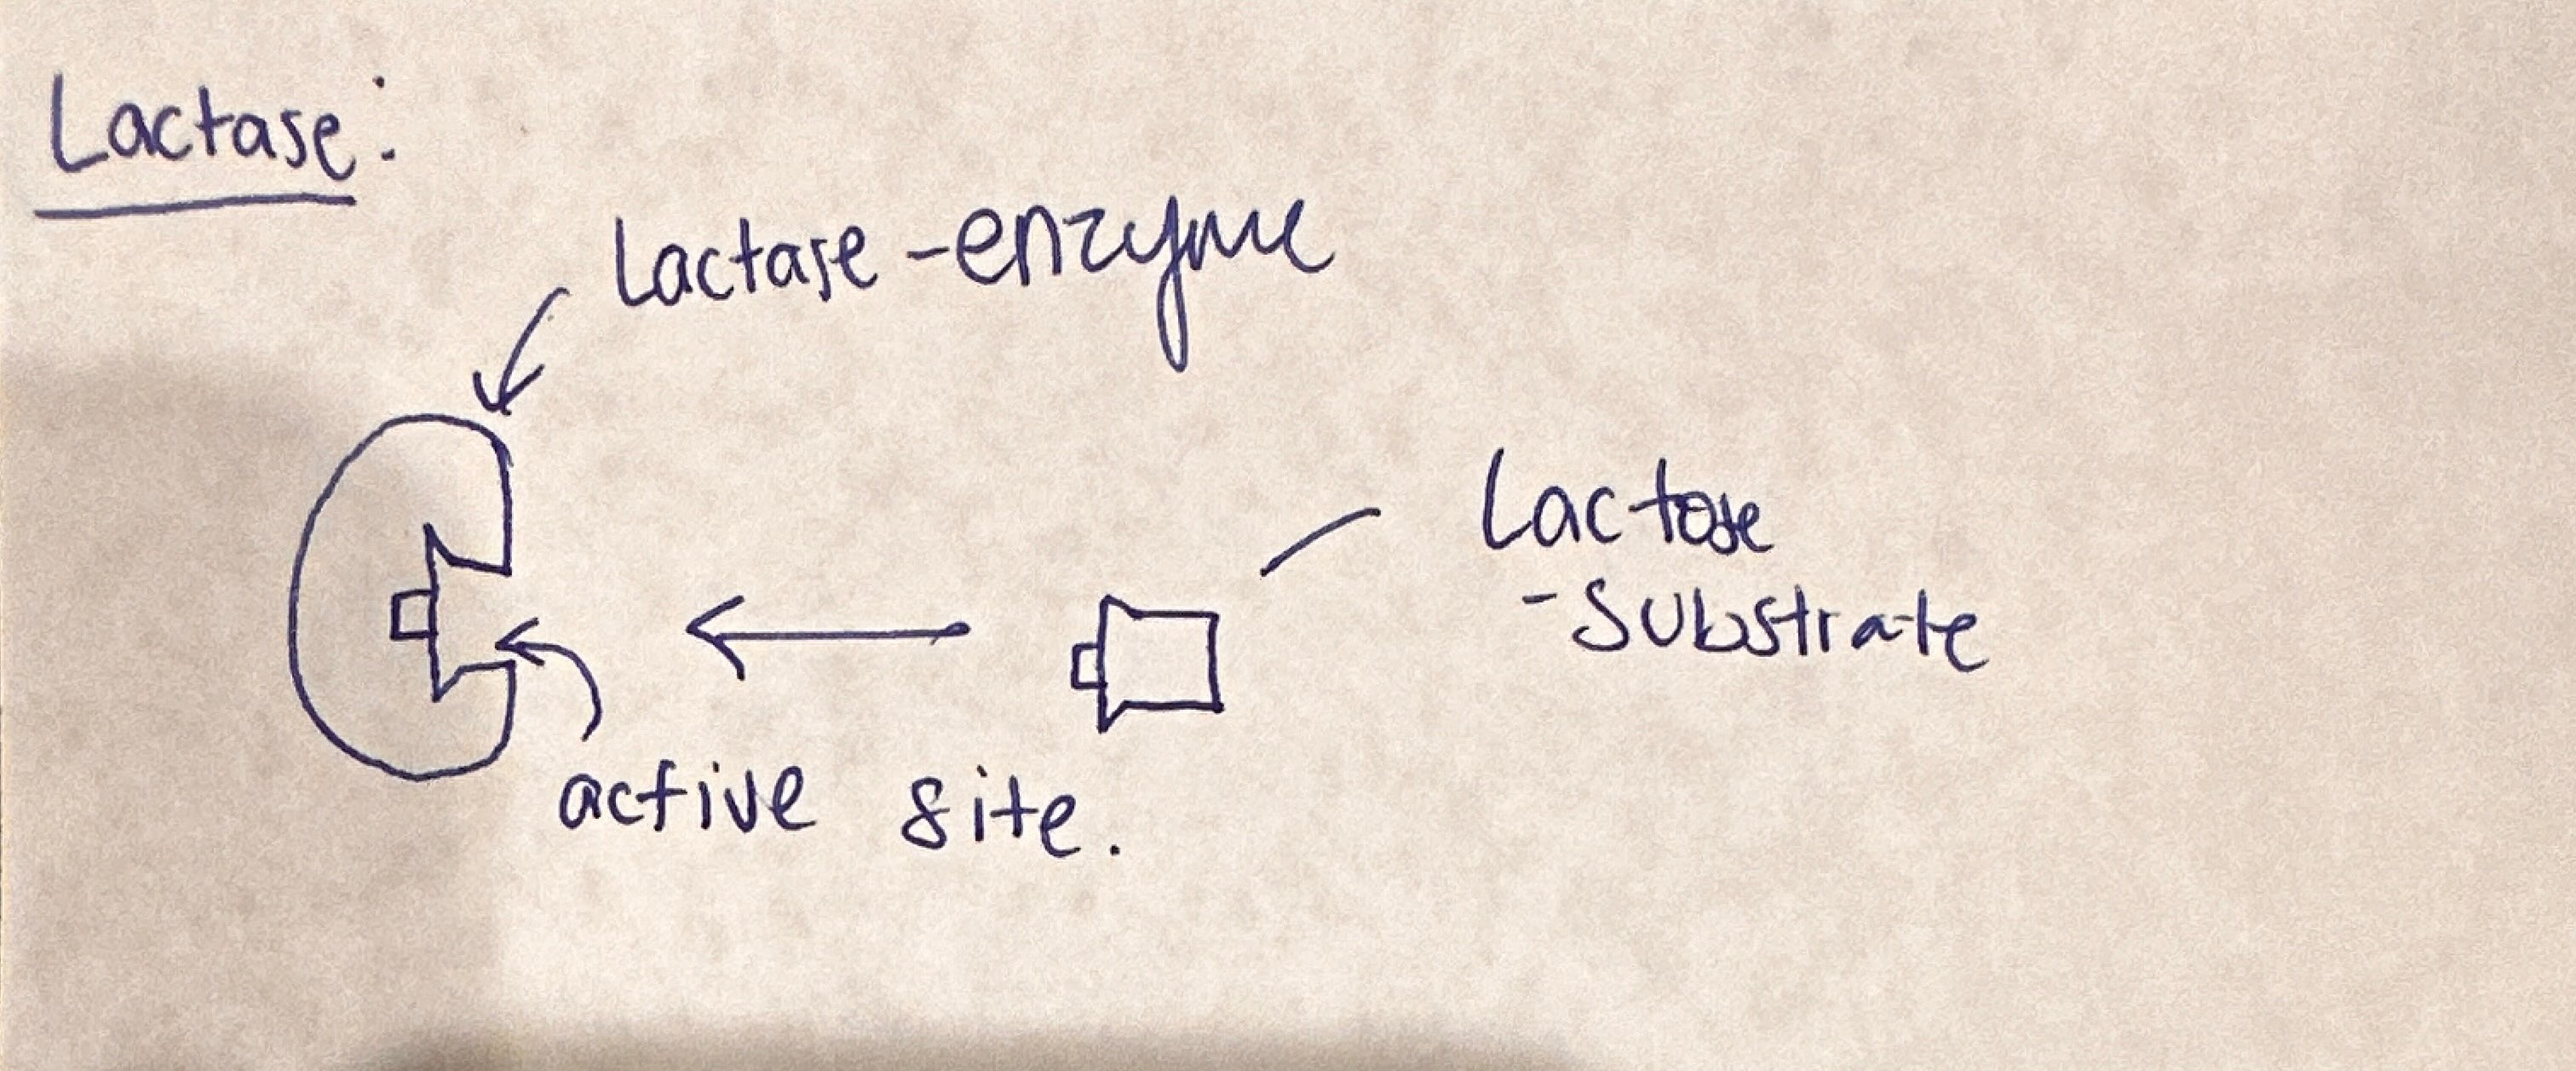 Lactase:
Lactase -enzyme
Lactose
-Substrate
active site.